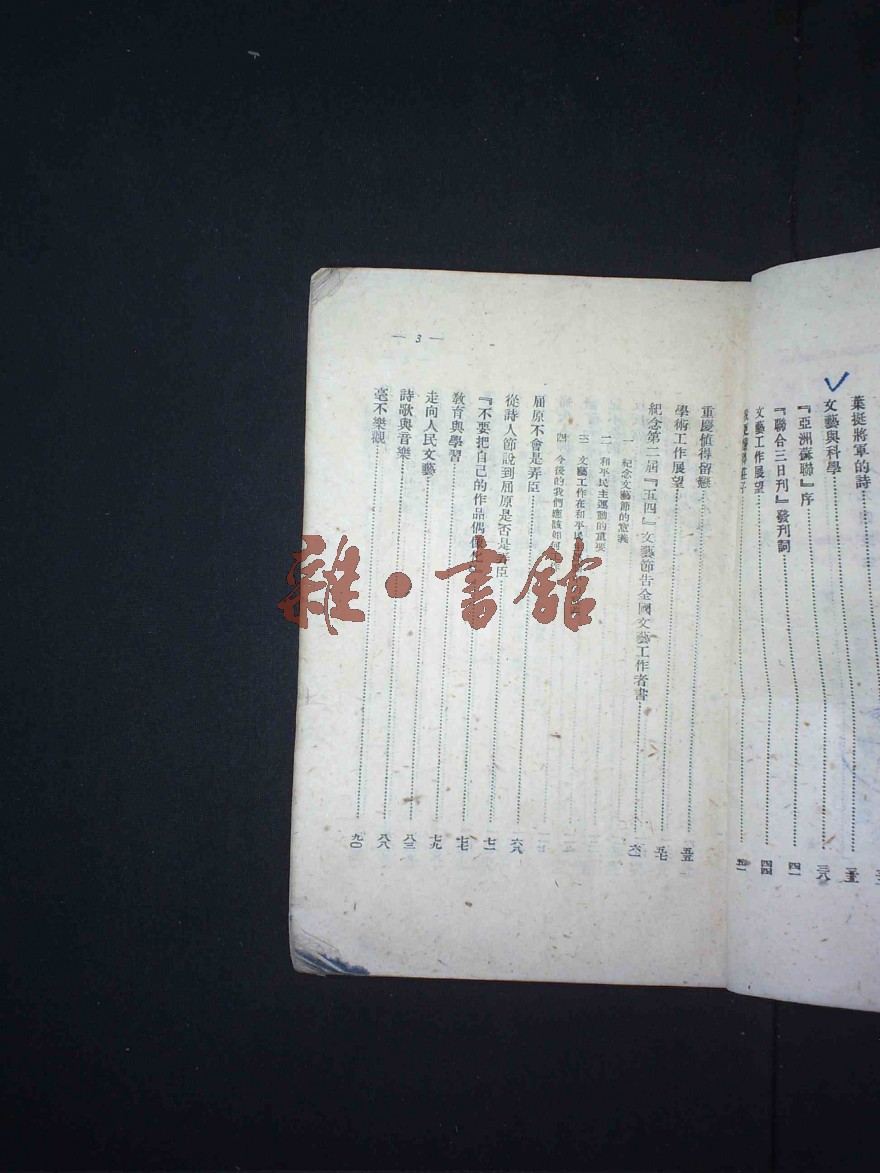 葉挺將軍的詩……三五
文藝與科學……三八
『亞洲蘇聯』序……四一
『聯合三日刊』發刊詞……四四
文藝工作展望……
— 3 —
重慶值得留戀……五五
學術工作展望……五七
紀念第二屆『五四』文藝節告全國文藝工作者書……六一
一 紀念文藝節的意義
二 和平民主運動的重要
三 文藝工作在和平民
四 今後的我們應該如何
屈原不會是弄臣……六八
從詩人節說到屈原是否是弄臣……七一
『不要把自己的作品偶像……七七
教育與學習……七九
走向人民文藝……八三
詩歌與音樂……八八
毫不樂觀……九〇
雜·書館